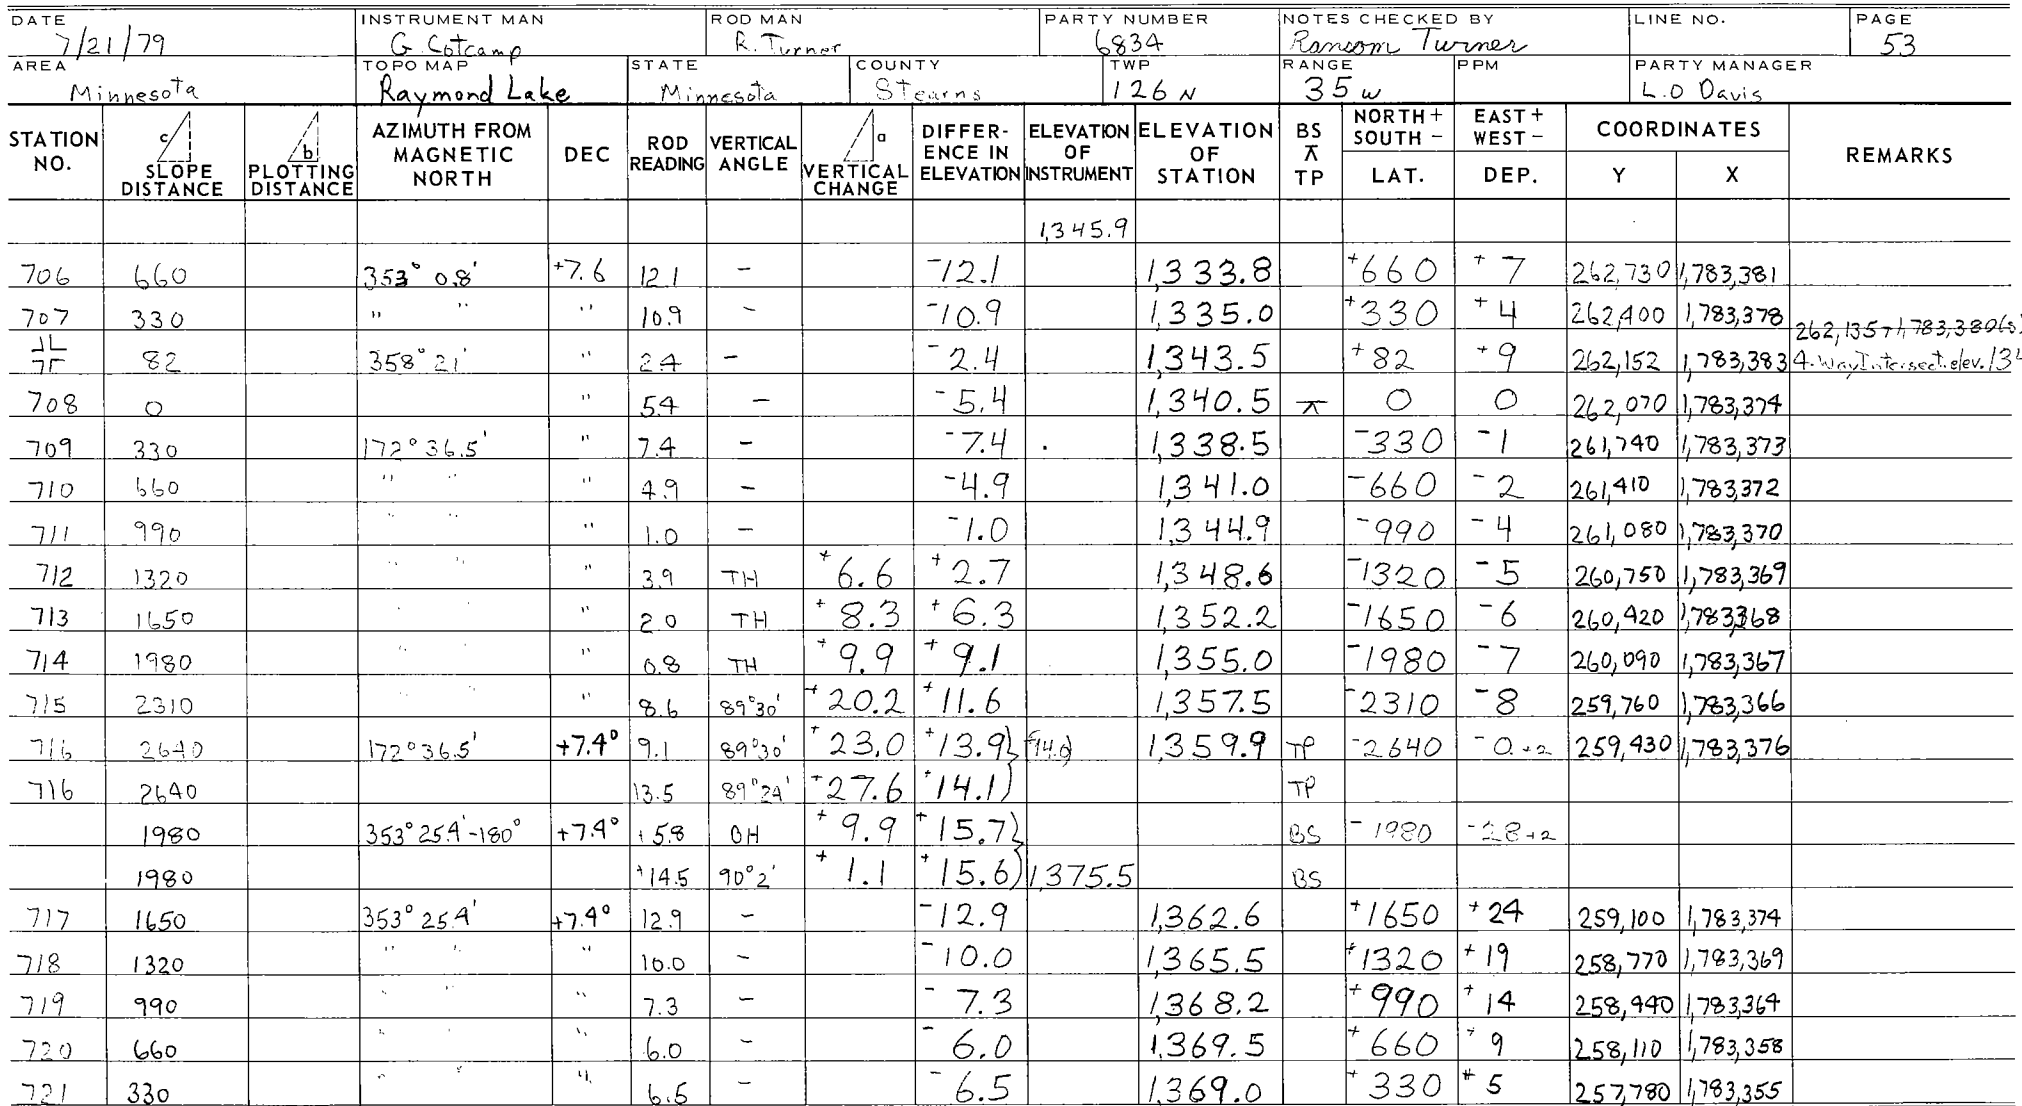 DATE INSTRUMENT MAN ROD MAN PARTY NUMBER NOTES CHECKED BY LINE NO. PAGE
7/21/79 G. Cotcamp R. Turner 6834 Ransom Turner 53
AREA TOPO MAP STATE COUNTY TWP RANGE PPM PARTY MANAGER
Minnesota Raymond Lake Minnesota Stearns 126 N 35 W L.O Davis
STATION NO. c SLOPE DISTANCE b PLOTTING DISTANCE AZIMUTH FROM MAGNETIC NORTH DEC ROD READING VERTICAL ANGLE a VERTICAL CHANGE DIFFERENCE IN ELEVATION ELEVATION OF INSTRUMENT ELEVATION OF STATION BS ⊼ TP NORTH + SOUTH - LAT. EAST + WEST - DEP. COORDINATES Y X REMARKS
1,345.9
706 660 353° 0.8' +7.6 12.1 - -12.1 1,333.8 +660 +7 262,730 1,783,381
707 330 " " " 10.9 - -10.9 1,335.0 +330 +4 262,400 1,783,378 262,135 1,783,380(s)
82 358° 21' " 2.4 - -2.4 1,343.5 +82 +9 262,152 1,783,383 4-Way Intersect. elev. 134
708 0 " 5.4 - -5.4 1,340.5 ⊼ 0 0 262,070 1,783,374
709 330 172° 36.5' " 7.4 - -7.4 1,338.5 -330 -1 261,740 1,783,373
710 660 " " " 4.9 - -4.9 1,341.0 -660 -2 261,410 1,783,372
711 990 " " " 1.0 - -1.0 1,344.9 -990 -4 261,080 1,783,370
712 1320 " " " 3.9 TH +6.6 +2.7 1,348.6 -1320 -5 260,750 1,783,369
713 1650 " " " 2.0 TH +8.3 +6.3 1,352.2 -1650 -6 260,420 1,783,368
714 1980 " " " 0.8 TH +9.9 +9.1 1,355.0 -1980 -7 260,090 1,783,367
715 2310 " " " 8.6 89°30' +20.2 +11.6 1,357.5 -2310 -8 259,760 1,783,366
716 2640 172° 36.5' +7.4° 9.1 89°30' +23.0 +13.9} 1,359.9 TP -2640 -0+2 259,430 1,783,376
716 2640 13.5 89°24' +27.6 +14.1) TP
1980 353° 25.4'-180° +7.4° +5.8 OH +9.9 +15.7} BS -1980 -28+2
1980 +14.5 90°2' +1.1 +15.6) 1,375.5 BS
717 1650 353° 25.4' +7.4° 12.9 - -12.9 1,362.6 +1650 +24 259,100 1,783,374
718 1320 " " " 10.0 - -10.0 1,365.5 +1320 +19 258,770 1,783,369
719 990 " " " 7.3 - -7.3 1,368.2 +990 +14 258,440 1,783,364
720 660 " " " 6.0 - -6.0 1,369.5 +660 +9 258,110 1,783,358
721 330 " " " 6.5 - -6.5 1,369.0 +330 +5 257,780 1,783,355